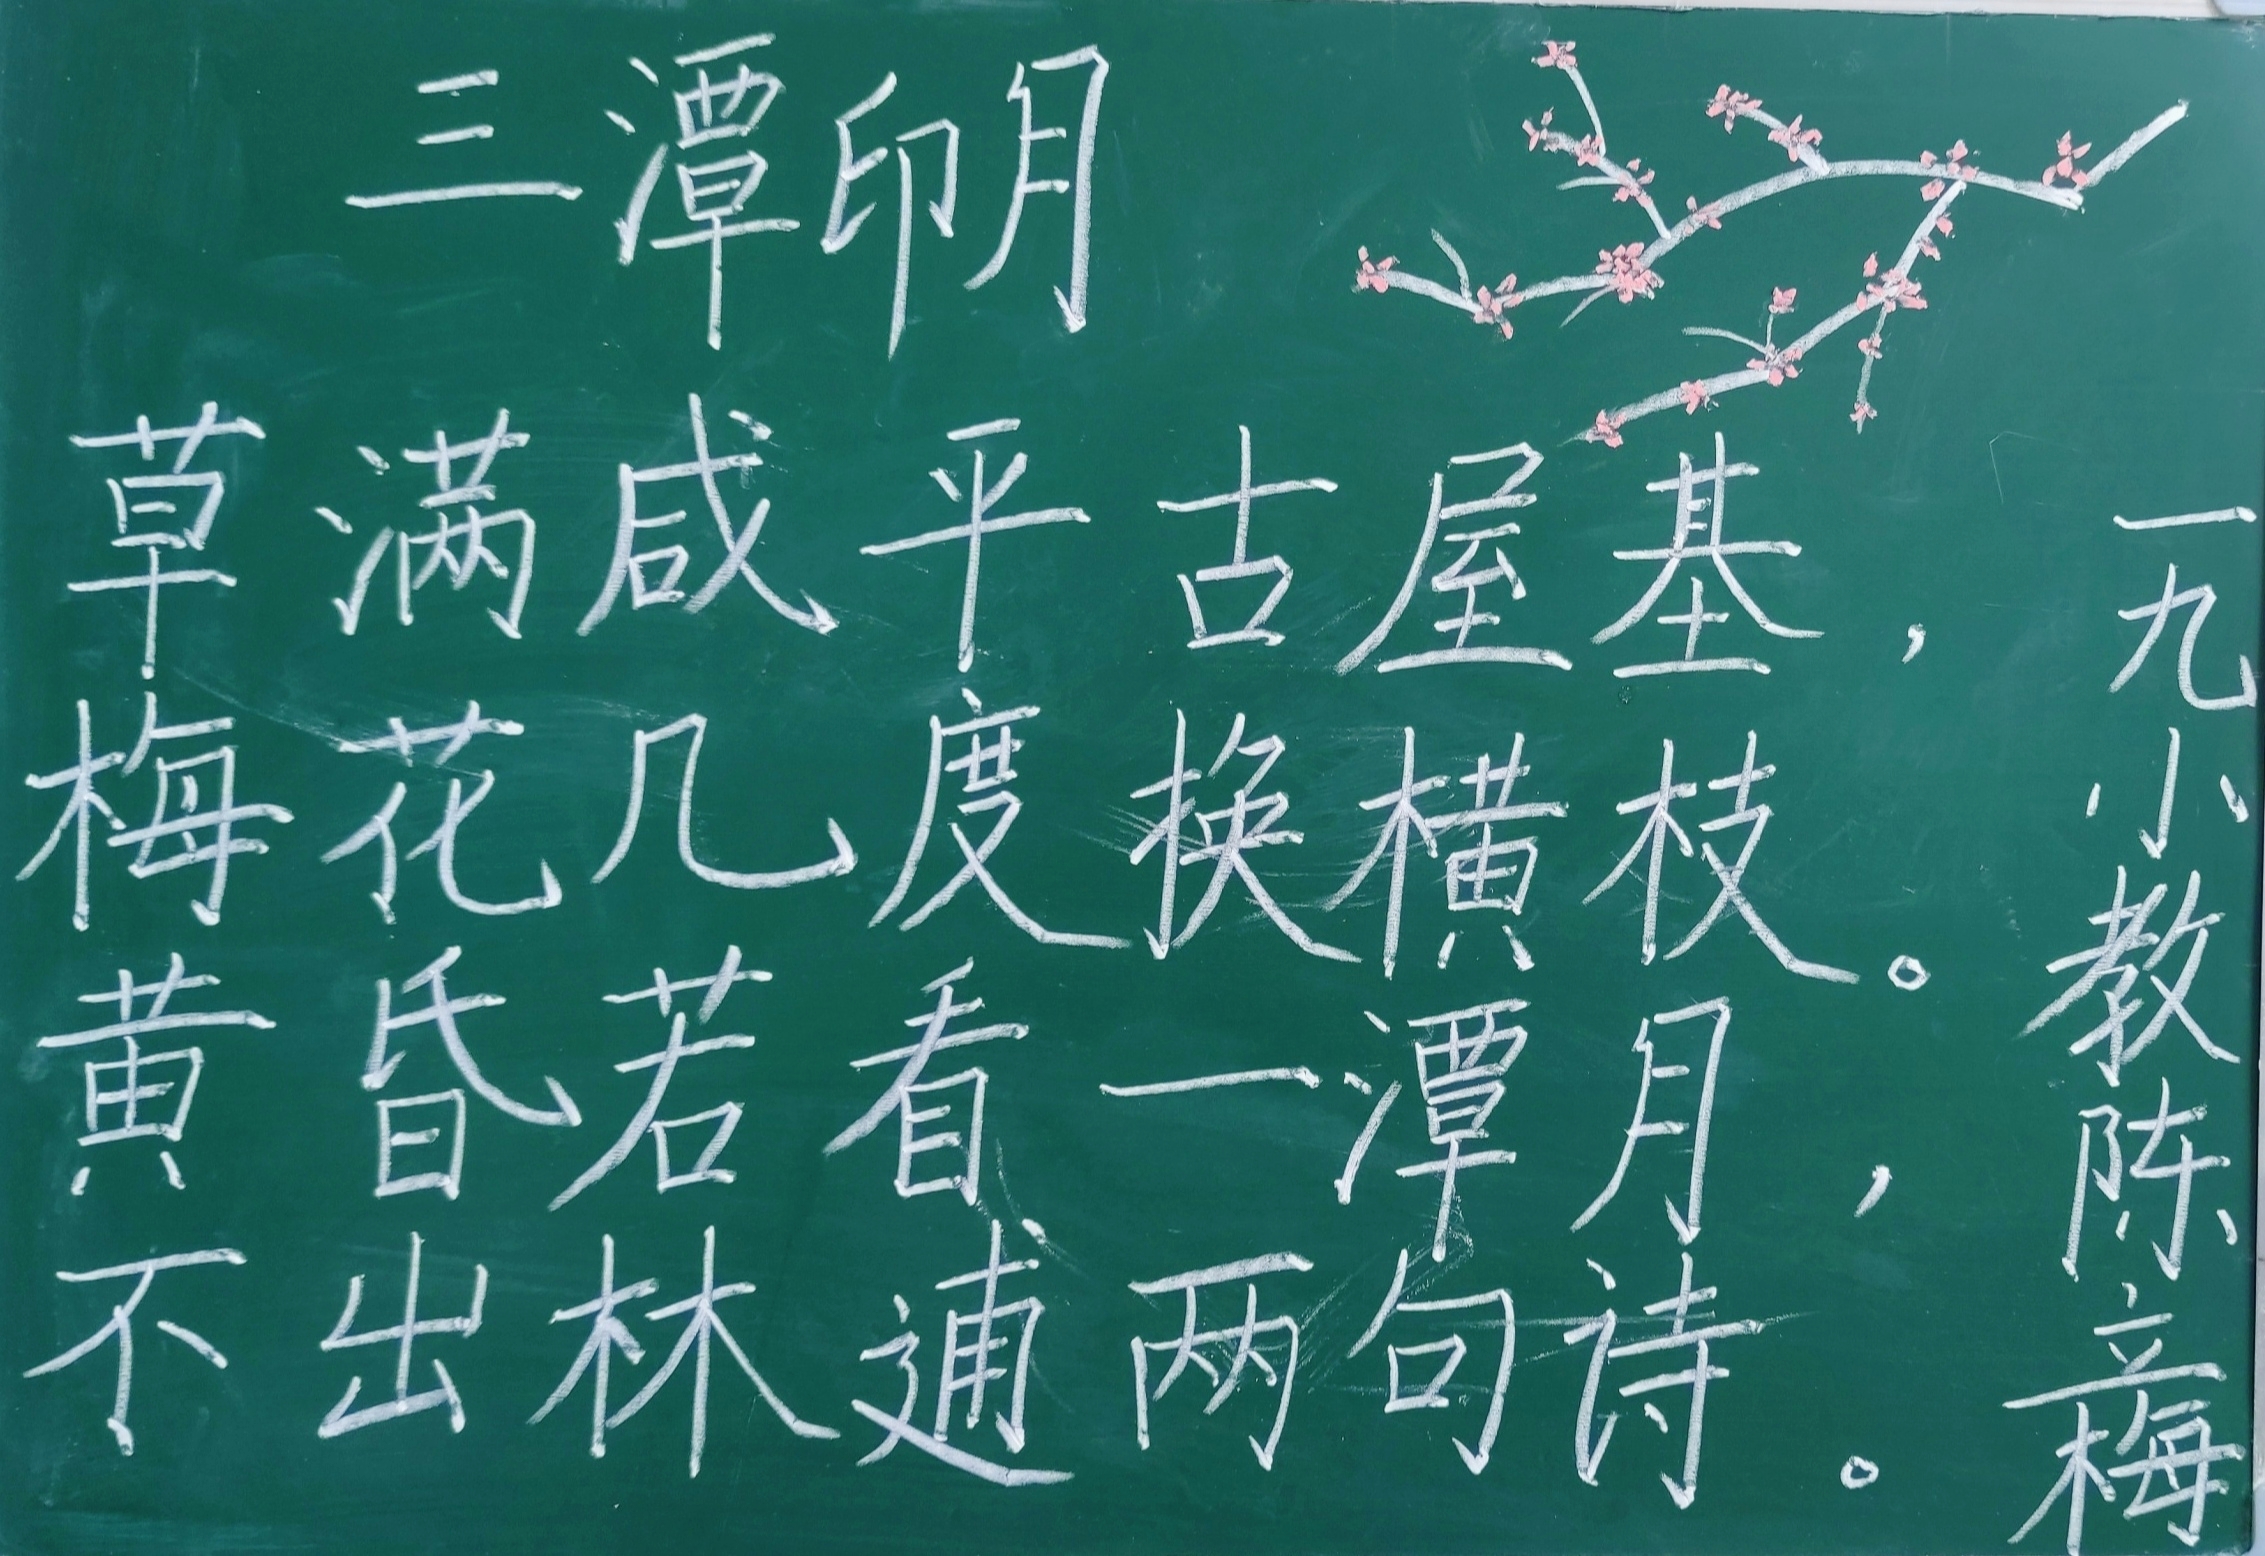 三潭印月
草满咸平古屋基，
梅花几度换横枝。
黄昏若看一潭月，
不出林逋两句诗。
一九小教陈立梅